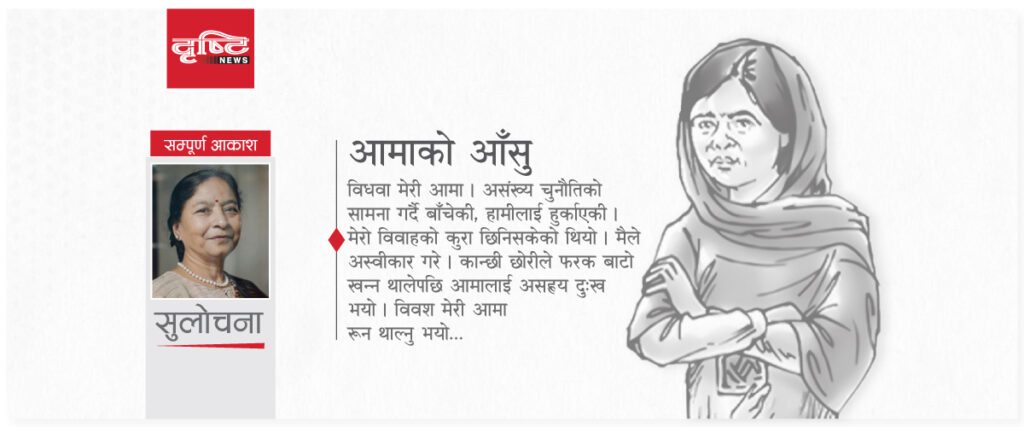 दृष्टि
NEWS
सम्पूर्ण आकाश
सुलोचना
आमाको आँसु
विधवा मेरी आमा । असंख्य चुनौतिको
सामना गर्दै बाँचेकी, हामीलाई हुर्काएकी ।
मेरो विवाहको कुरा छिनिसकेको थियो । मैले
अस्वीकार गरे । कान्छी छोरीले फरक बाटो
खन्न थालेपछि आमालाई असह्रय दुःख
भयो । विवश मेरी आमा
रून थाल्नु भयो...